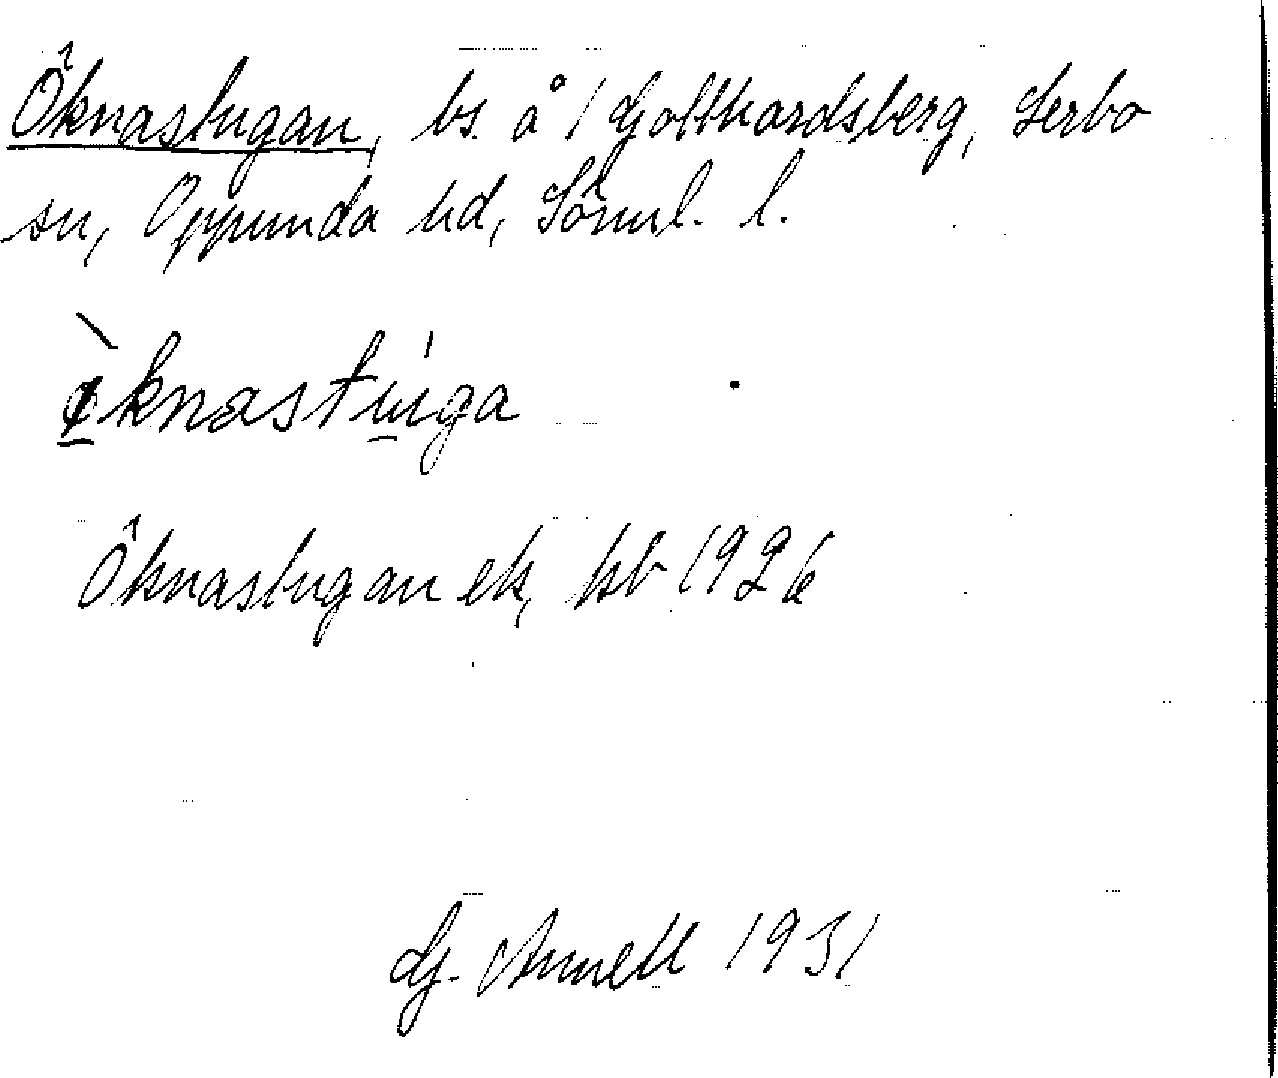 Öknastugan, bs. å 1 Gotthardsberg, Lerbo
sn, Oppunda hd, Söml. l.
ø̀knastu̇ga
Öknastugan ek, hsb 1926
G. Annell 1931